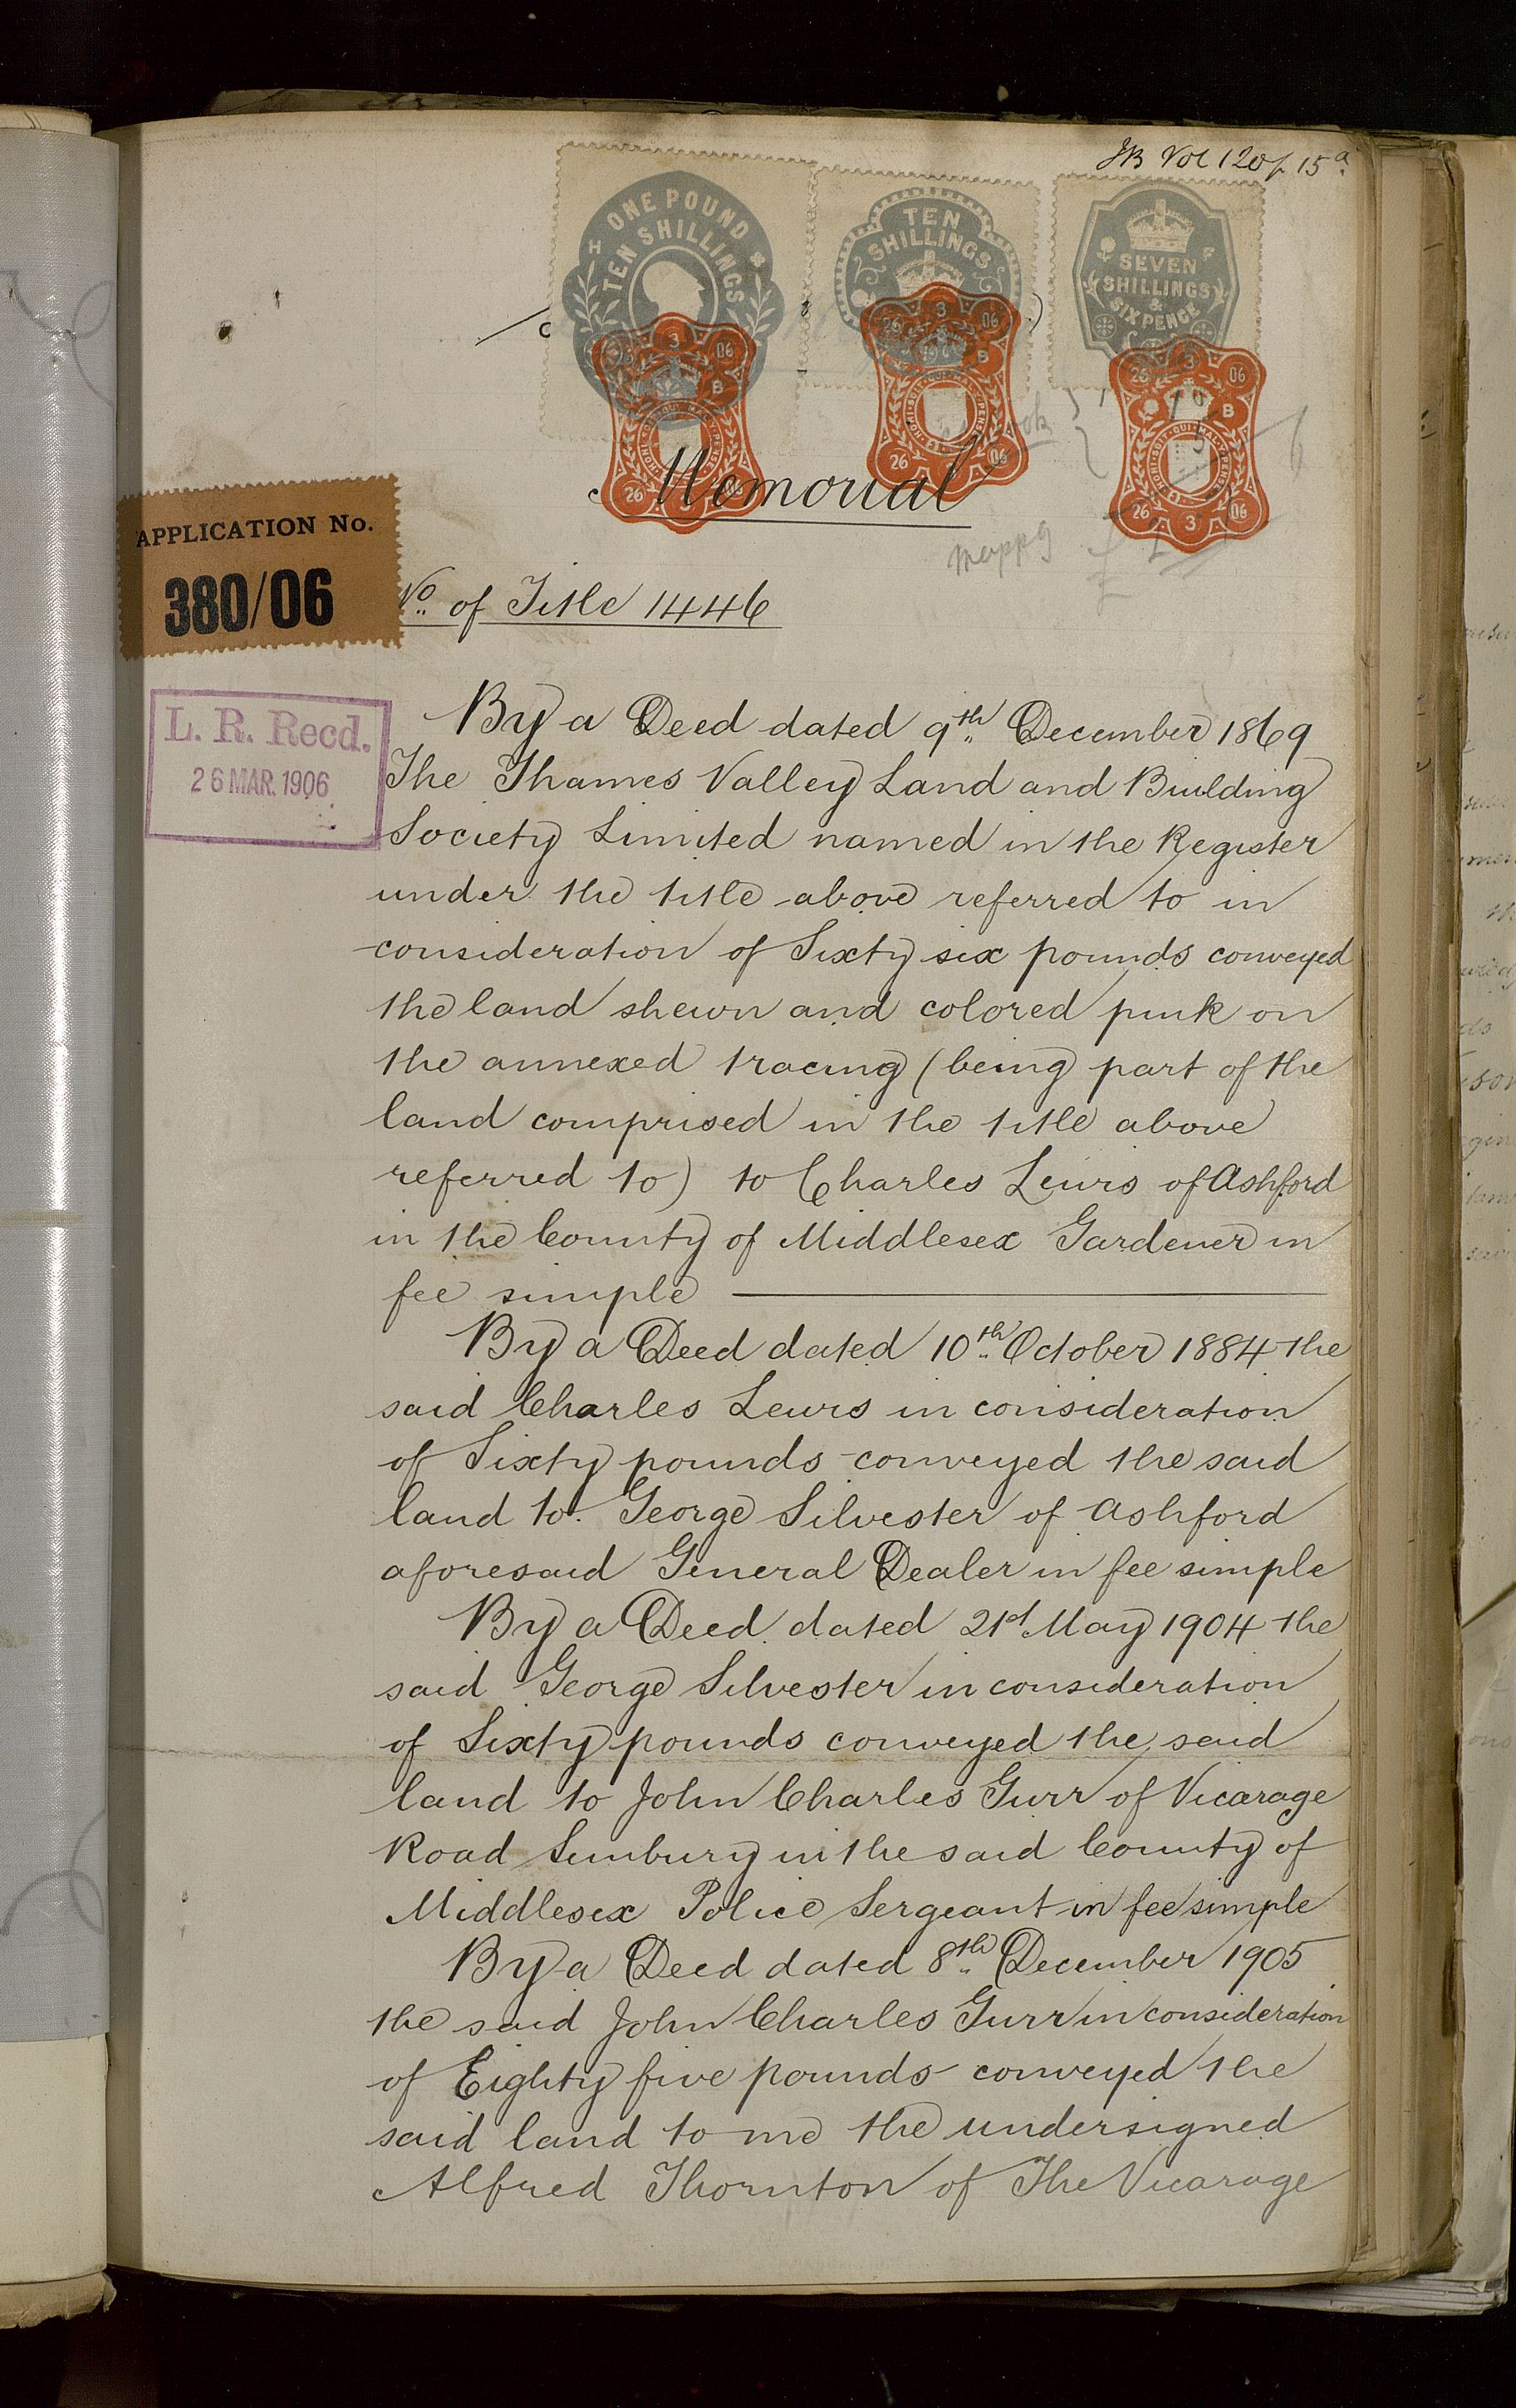 JB Vol 120 p. 15a
ONE POUND
TEN SHILLINGS
TEN
SHILLINGS
SEVEN
SHILLINGS
&
SIXPENCE
26 3 06
B
HONI·SOIT·QUI·MAL·Y·PENSE
26 3 06
26 3 06
B
HONI·SOIT·QUI·MAL·Y·PENSE
26 06
26 3 06
B
HONI·SOIT·QUI·MAL·Y·PENSE
26 3 06
Memorial
mappg
APPLICATION No.
380/06
No. of Title 1446
L. R. Recd.
26 MAR. 1906
By a Deed dated 9th December 1869
The Thames Valley Land and Building
Society Limited named in the Register
under the title above referred to in
consideration of Sixty six pounds conveyed
the land shewn and colored pink on
the annexed tracing (being part of the
land comprised in the title above
referred to) to Charles Lewis of Ashford
in the County of Middlesex Gardener in
fee simple
By a Deed dated 10th October 1884 the
said Charles Lewis in consideration
of Sixty pounds conveyed the said
land to George Silvester of Ashford
aforesaid General Dealer in fee simple
By a Deed dated 21st May 1904 the
said George Silvester in consideration
of Sixty pounds conveyed the said
land to John Charles Gurr of Vicarage
Road Sunbury in the said County of
Middlesex Police Sergeant in fee simple
By a Deed dated 8th December 1905
the said John Charles Gurr in consideration
of Eighty five pounds conveyed the
said land to me the undersigned
Alfred Thornton of The Vicarage